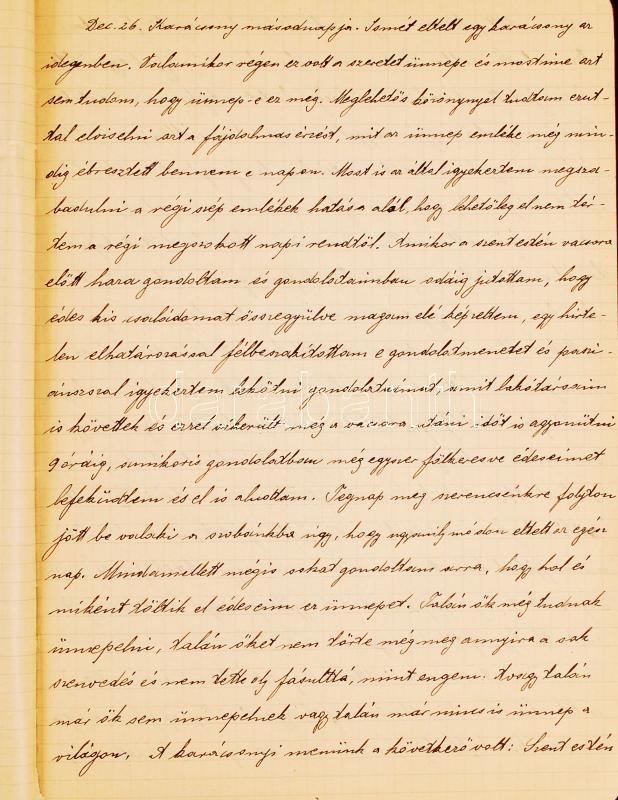 Dec. 26. Karácsony másodnapja. Ismét eltelt egy karácsony az
idegenben. Valamikor régen ez volt a szeretet ünnepe és most ime azt
sem tudom, hogy ünnep-e ez még. Meglehetős közönnyel tudtam ezut-
tal elviselni azt a fájdalmas érzést, mit az ünnep emléke még min-
dig ébresztett bennem e napon. Most is az által igyekeztem megsza-
badulni a régi szép emlékek hatása alól, hogy lehetőleg el nem tér-
tem a régi megszokott napi rendtől. Amikor a szent estén vacsora
előtt haza gondoltam és gondolataimban odáig jutottam, hogy
édes kis családomat összegyülve magam elé képzeltem, egy hirte-
len elhatározással félbeszakítottam e gondolatmenetet és paszi-
ánszszal igyekeztem lekötni gondolataimat, amit lakótársaim
is követtek és ezzel sikerült még a vacsora utáni időt is agyonütni
9 óráig, amikoris gondolatban még egyszer fölkeresve édeseimet
lefeküdtem és el is aludtam. Tegnap meg szerencsénkre folyton
jött be valaki a szobánkba úgy, hogy ugyanily módon eltelt az egész
nap. Mindamellett mégis sokat gondoltam arra, hogy hol és
miként töltik el édeseim ez ünnepet. Talán ők még tudnak
ünnepelni, talán őket nem törte még meg annyira a sok
szenvedés és nem tette oly fásulttá, mint engem. Avagy talán
már ők sem ünnepelnek vagy talán már nincs is ünnep a
világon. A karácsonyi menünk a következő volt: Szent estén
darabanth